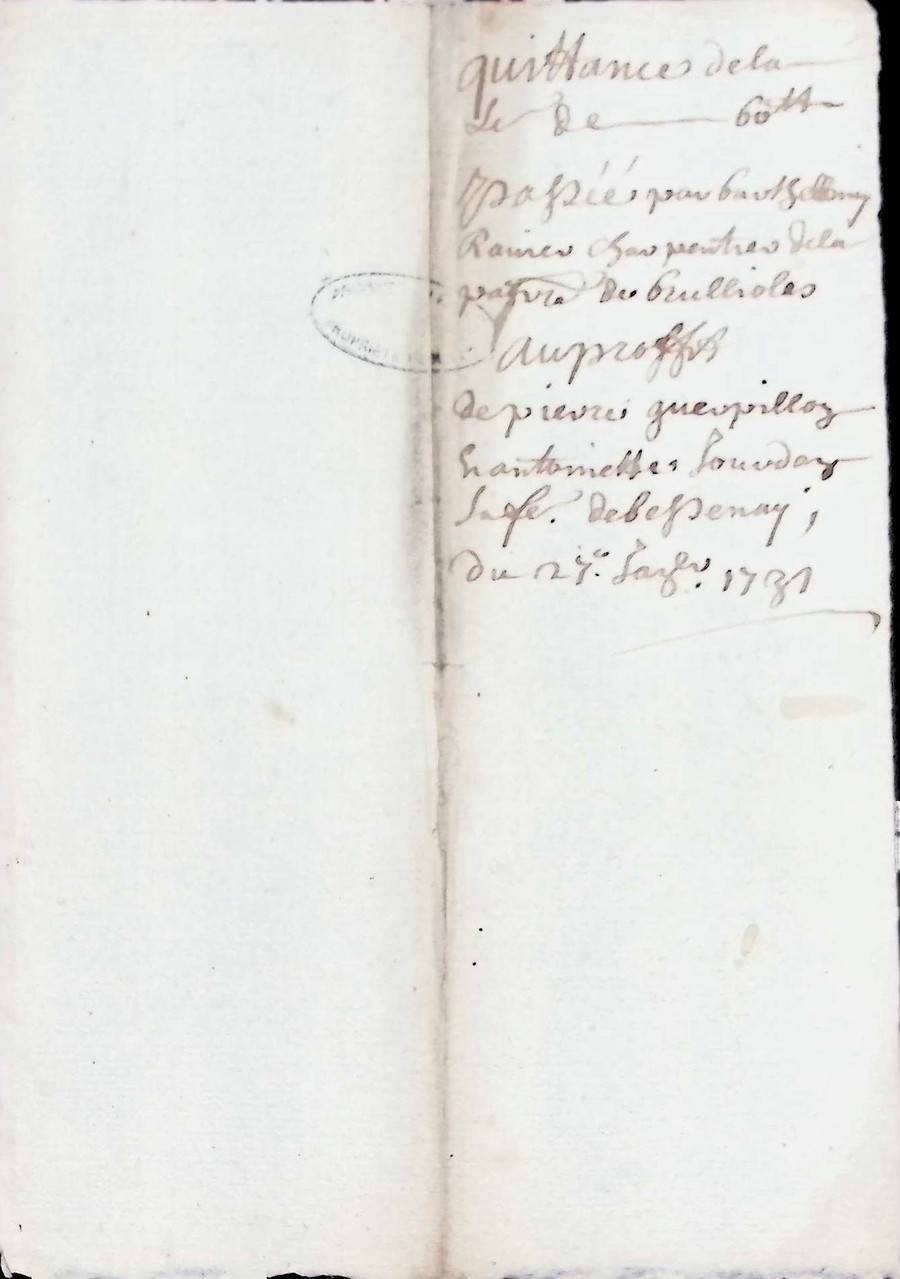 quittance de la
Se de 60tt
passéé par barthellemy
Rainer charpentier de la
parre de brulliolas
au proffit
de pierre guerpillon
Et antoinette Jourdan
sa fe. de bessenay ;
du 27e. Janvr. 1731
PROPRIÉTÉ